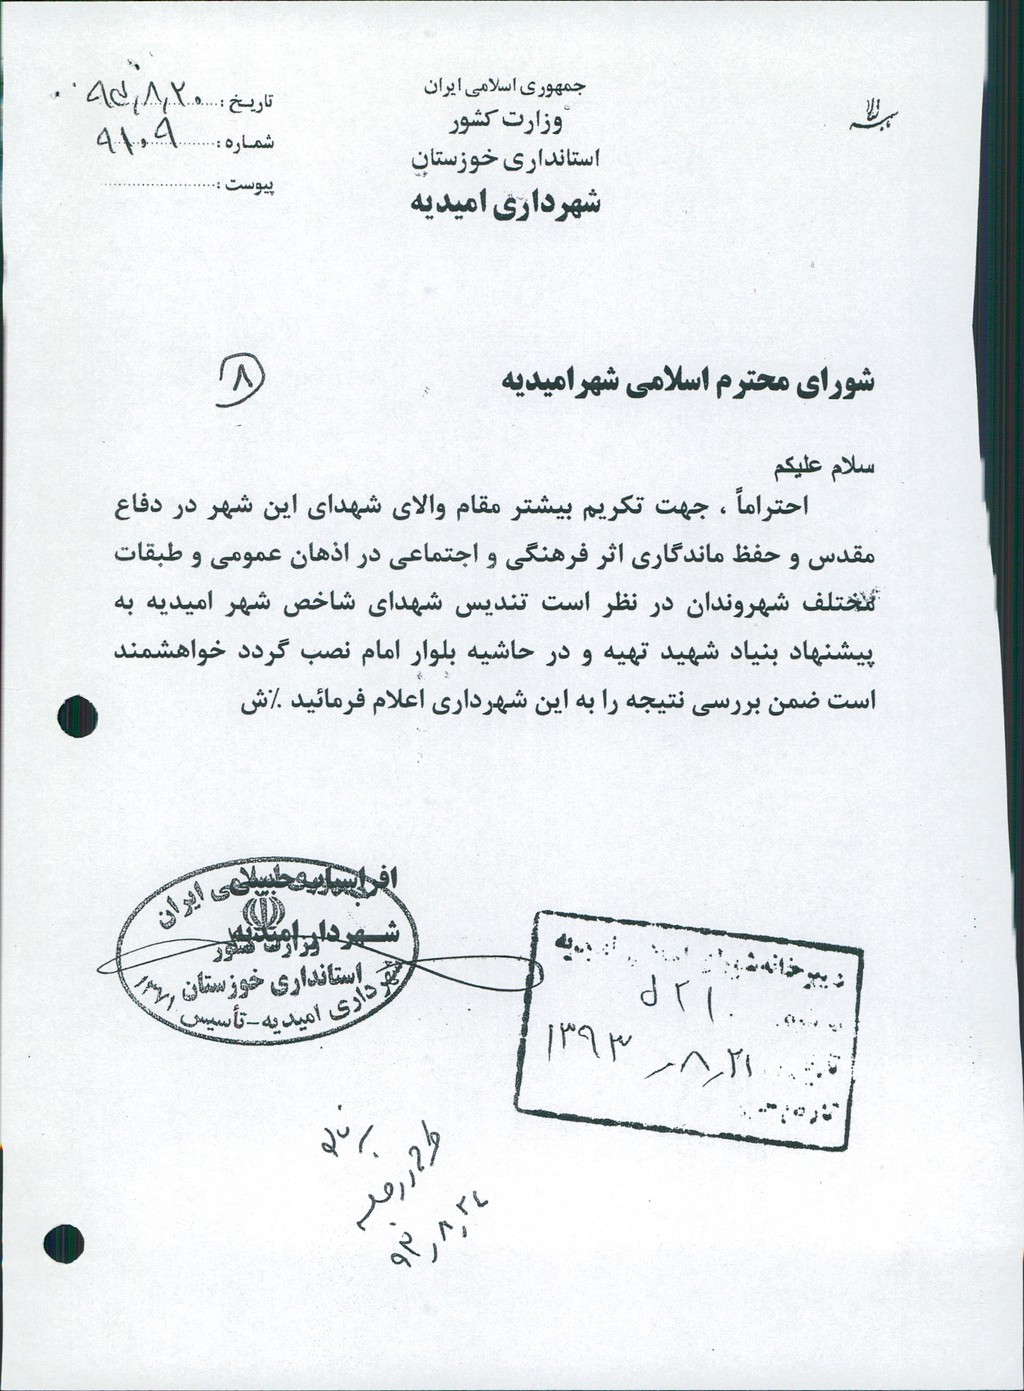 باسمه تعالی
جمهوری اسلامی ایران
وزارت کشور
استانداری خوزستان
شهرداری امیدیه
تاریخ : ۹۳٫۸٫۲۰
شماره : ۹۱۰۹
پیوست :
۸
شورای محترم اسلامی شهرامیدیه
سلام علیکم
احتراماً ، جهت تکریم بیشتر مقام والای شهدای این شهر در دفاع
مقدس و حفظ ماندگاری اثر فرهنگی و اجتماعی در اذهان عمومی و طبقات
مختلف شهروندان در نظر است تندیس شهدای شاخص شهر امیدیه به
پیشنهاد بنیاد شهید تهیه و در حاشیه بلوار امام نصب گردد خواهشمند
است ضمن بررسی نتیجه را به این شهرداری اعلام فرمائید ٪ش
شهردار امیدیه
ایران
وزارت کشور
استانداری خوزستان
شهرداری امیدیه-تأسیس ۱۳۷۱
دبیرخانه شورای اسلامی امیدیه
۱۳۹۳٫۸٫۲۱
طرح در جلسه